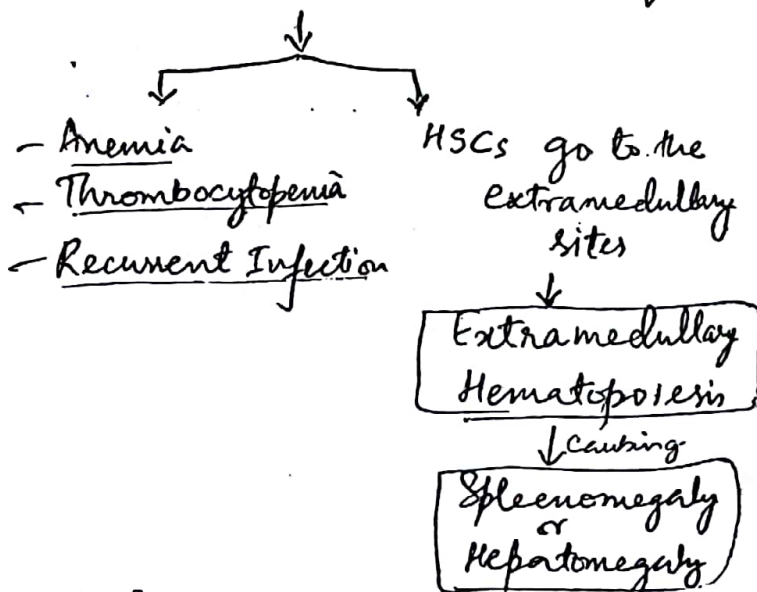 - Anemia
- Thrombocytopenia
- Recurrent Infection
HSCs go to the
extramedullary
sites
Extramedullary
Hematoposesis
causing
Spleenomegaly
or
Hepatomegaly